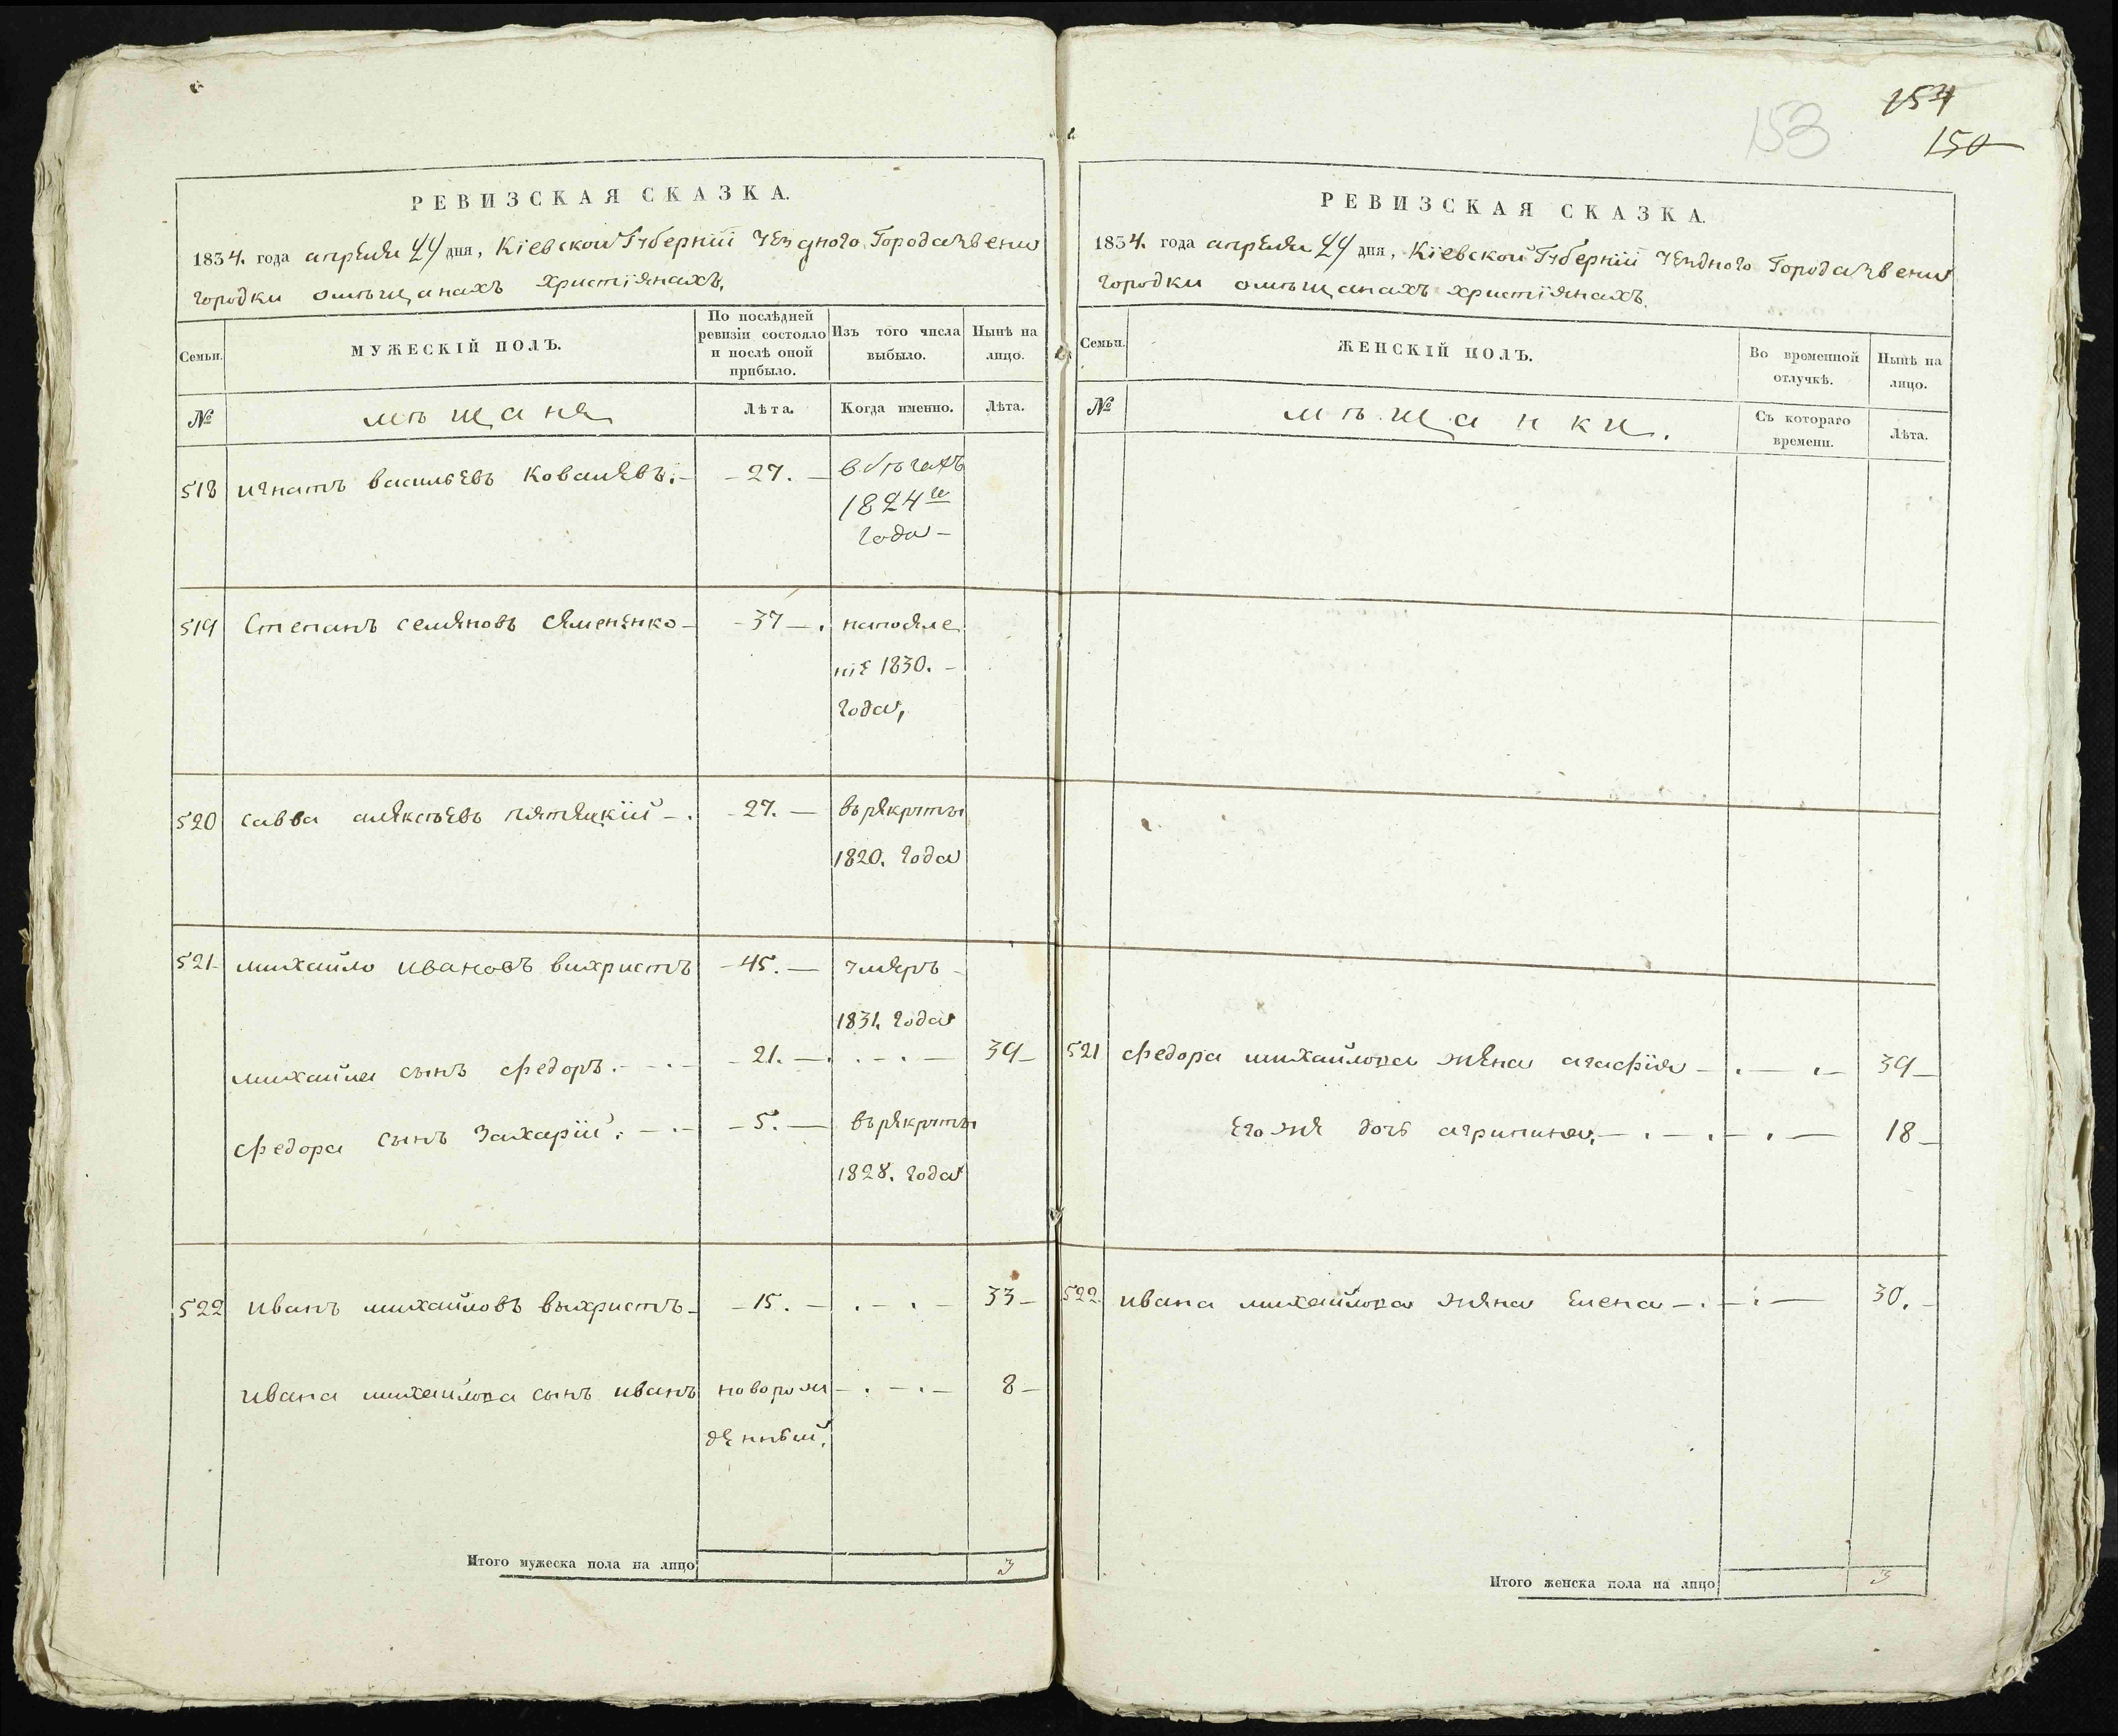 154
153
150
РЕВИЗСКАЯ СКАЗКА.
1834. года апреля 24 дня, Кіевской Губерніи уезднаго Города Звени
городки о мѣщанахъ христіянахъ,
Семьи.
МУЖЕСКІЙ ПОЛЪ.
По послѣдней ревизіи состояло и послѣ оной прибыло.
Изъ того числа выбыло.
Нынѣ на лицо.
№
мѣщане
Лѣта.
Когда именно.
Лѣта.
518 игнатъ васильевъ Ковалевъ. 27. в бѣгахъ
1824 го
года
519 Степанъ семеновъ семененко 37 на поселе
ніе 1830.
года,
520 савва алексѣевъ пятецкій 27. въ рекруты
1820. года
521 михайло ивановъ вихристъ 45. умеръ
1831. года
михайла сынъ федоръ. 21. 39
федора сынъ Захарій. 5. въ рекруты
1828. года
522 иванъ михайловъ вихристъ 15. 33
ивана михайлова сынъ иванъ новорож 8
денный,
Итого мужеска пола на лицо 3
РЕВИЗСКАЯ СКАЗКА.
1834. года апреля 24 дня, Кіевской Губерніи уезднаго Города Звени
городки о мѣщанахъ христіянахъ.
Семьи.
ЖЕНСКІЙ ПОЛЪ.
Во временной отлучкѣ.
Нынѣ на лицо.
№
мѣщанки.
Съ котораго времени.
Лѣта.
521 федора михайлова жена агафія 39
его же дочь агрипина, 18
522 ивана михайлова жена елена 30.
Итого женска пола на лицо 3